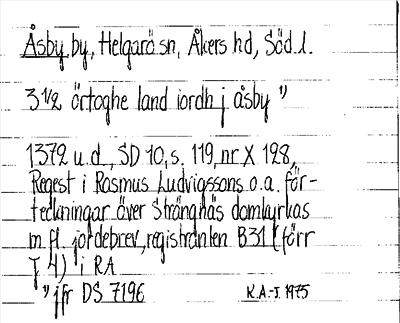 Åsby by, Helgarö sn, Åkers hd, Söd.l.
3 1/2 örtoghe land iordh j åsby "
1372 u.d., SD 10, s. 119, nr X 128,
Regest i Rasmus Ludvigssons o.a. för-
teckningar över Strängnäs domkyrkas
m.fl. jordebrev, registranten B31 (förr
J 4) i RA
" jfr DS 7196
K.A.-J. 1975